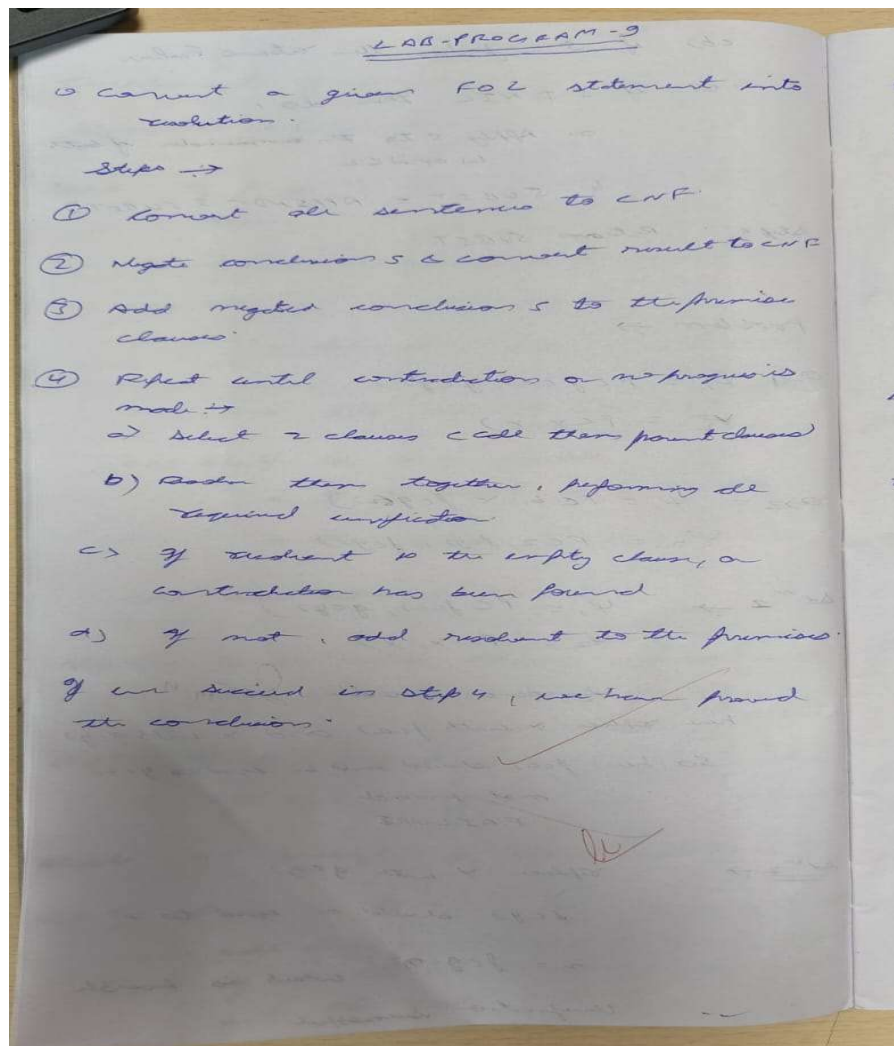 LAB-PROGRAM-9
Convert a given FOL statement into
resolution.
Steps →
① Convert all sentences to CNF
② Negate conclusion S & convert result to CNF
③ Add negated conclusion S to the premise
clauses.
④ Repeat until contradiction or no progress is
made →
a) Select 2 clauses (call them parent clauses)
b) Resolve them together, performing all
required unification
c) If resolvent is the empty clause, a
contradiction has been found
d) If not, add resolvent to the premises.
If we succeed in step 4, we have proved
the conclusion.